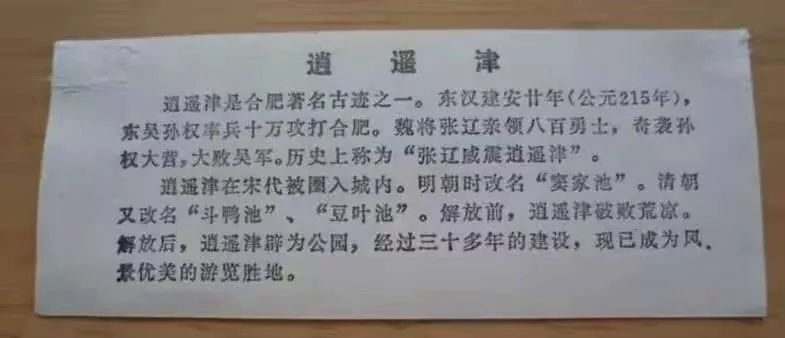 逍遥津
逍遥津是合肥著名古迹之一。东汉建安廿年(公元215年),
东吴孙权率兵十万攻打合肥。魏将张辽亲领八百勇士,奇袭孙
权大营,大败吴军。历史上称为“张辽威震逍遥津”。
逍遥津在宋代被圈入城内。明朝时改名“窦家池”。清朝
又改名“斗鸭池”、“豆叶池”。解放前,逍遥津破败荒凉。
解放后,逍遥津辟为公园,经过三十多年的建设,现已成为风
景优美的游览胜地。